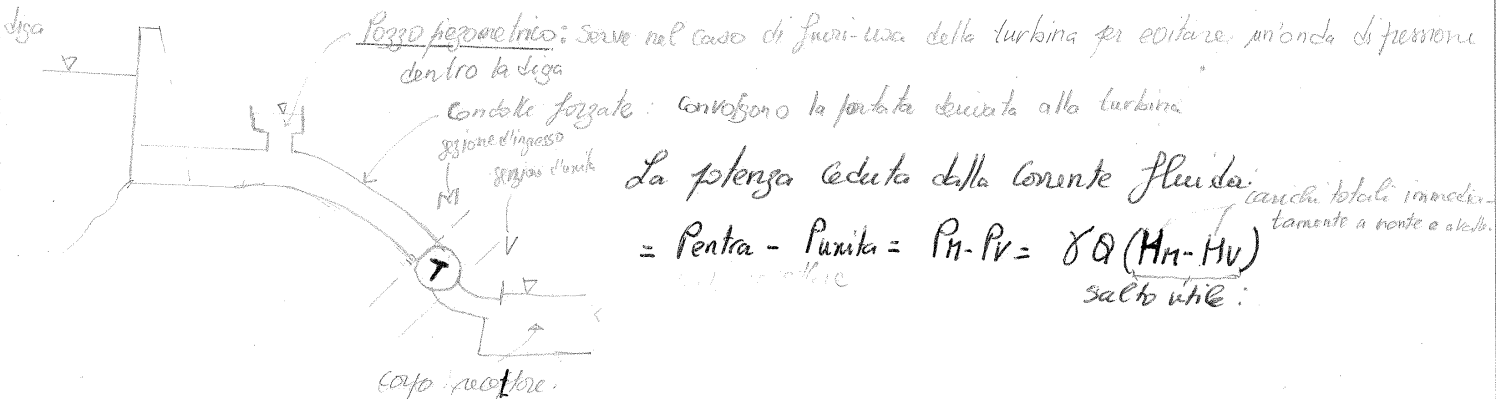 diga
Pozzo piezometrico: serve nel caso di fuori-uso della turbina per evitare un'onda di pressione
dentro la diga
Condotte forzate: convolgono la portata derivata alla turbina
sezione d'ingresso
sezione d'uscita
M
V
T
La potenza ceduta dalla corrente fluida:
carichi totali immedia-
tamente a monte e a valle.
= Pentra - Puscita = PM - PV = γ Q (HM - HV)
salto utile:
corpo recettore.